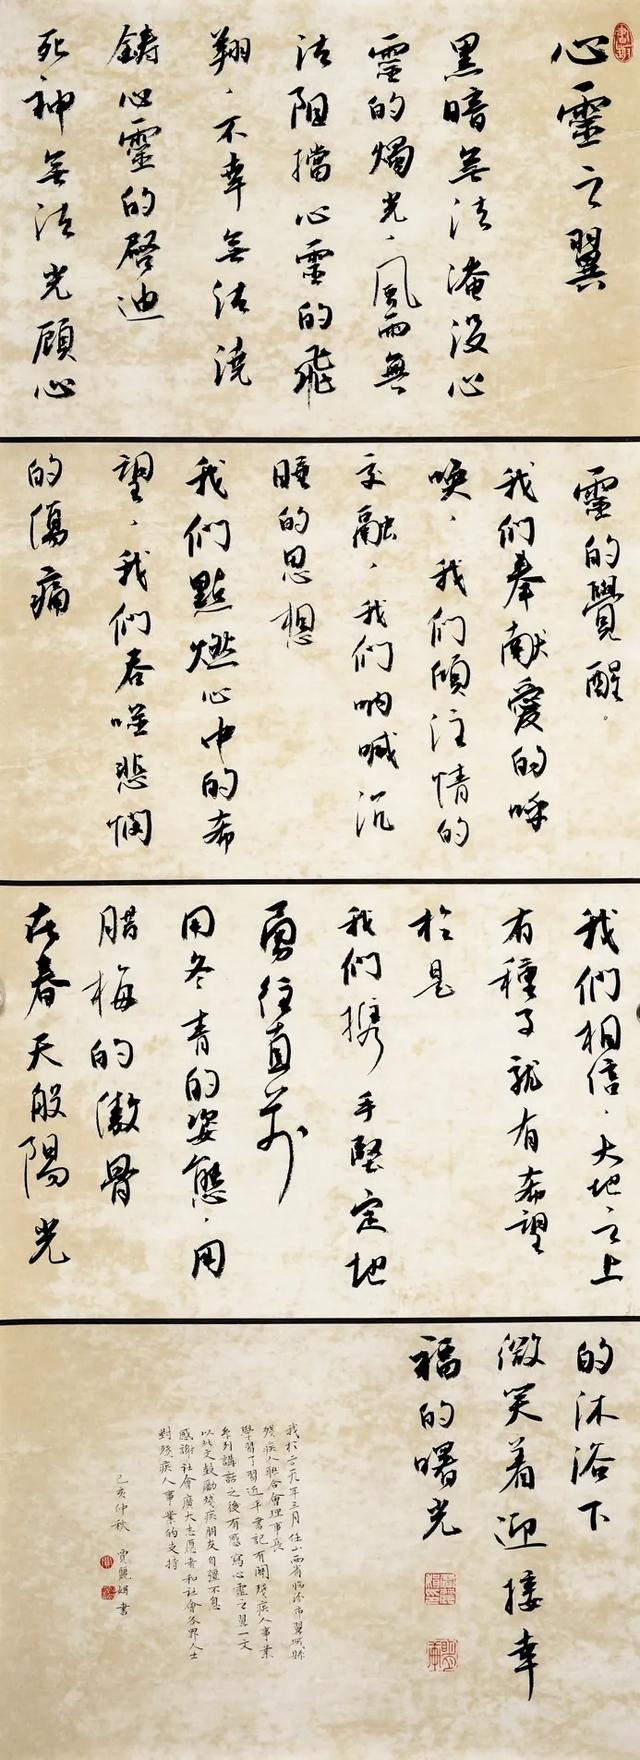 心靈之翼
黑暗無法淹沒心
靈的燭光，風雨無
法阻擋心靈的飛
翔，不幸無法澆
鑄心靈的啓迪
死神無法光顧心
靈的覺醒。
我们奉献愛的呼
唤，我们傾注情的
交融，我们呐喊沉
睡的思想
我们點燃心中的希
望，我们吞噬悲憫
的傷痛
我们相信，大地之上
有種子就有希望
於是
我们携手堅定地
勇往直前
用冬青的姿態，用
腊梅的傲骨
在春天般陽光
的沐浴下
微笑着迎接幸
福的曙光
我於二〇一九年三月任山西省臨汾市翼城縣
殘疾人聯合會理事長
學習了習近平書記有關殘疾人事業
系列講話之後有感寫心靈之翼一文
以此文鼓勵殘疾朋友自强不息
感謝社會廣大志愿者和社會各界人士
對殘疾人事業的支持
己亥仲秋 賈麗娟書